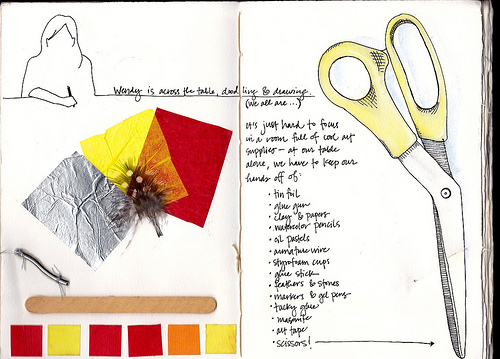 Wendy is across the table, doodling & drawing.
(we all are...)
It's just hard to focus
in a room full of cool art
supplies – at our table
alone, we have to keep our
hands off of:
• tin foil
• glue gun
• clay & papers
• watercolor pencils
• oil pastels
• armature wire
• styrofoam cups
• glue stick
• feathers & stones
• markers & gel pens
• tacky glue
• masonite
• art tape
• scissors!